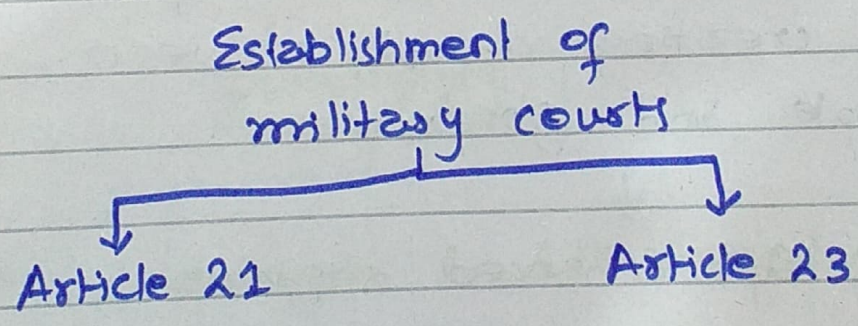 Establishment of
military courts
Article 21
Article 23